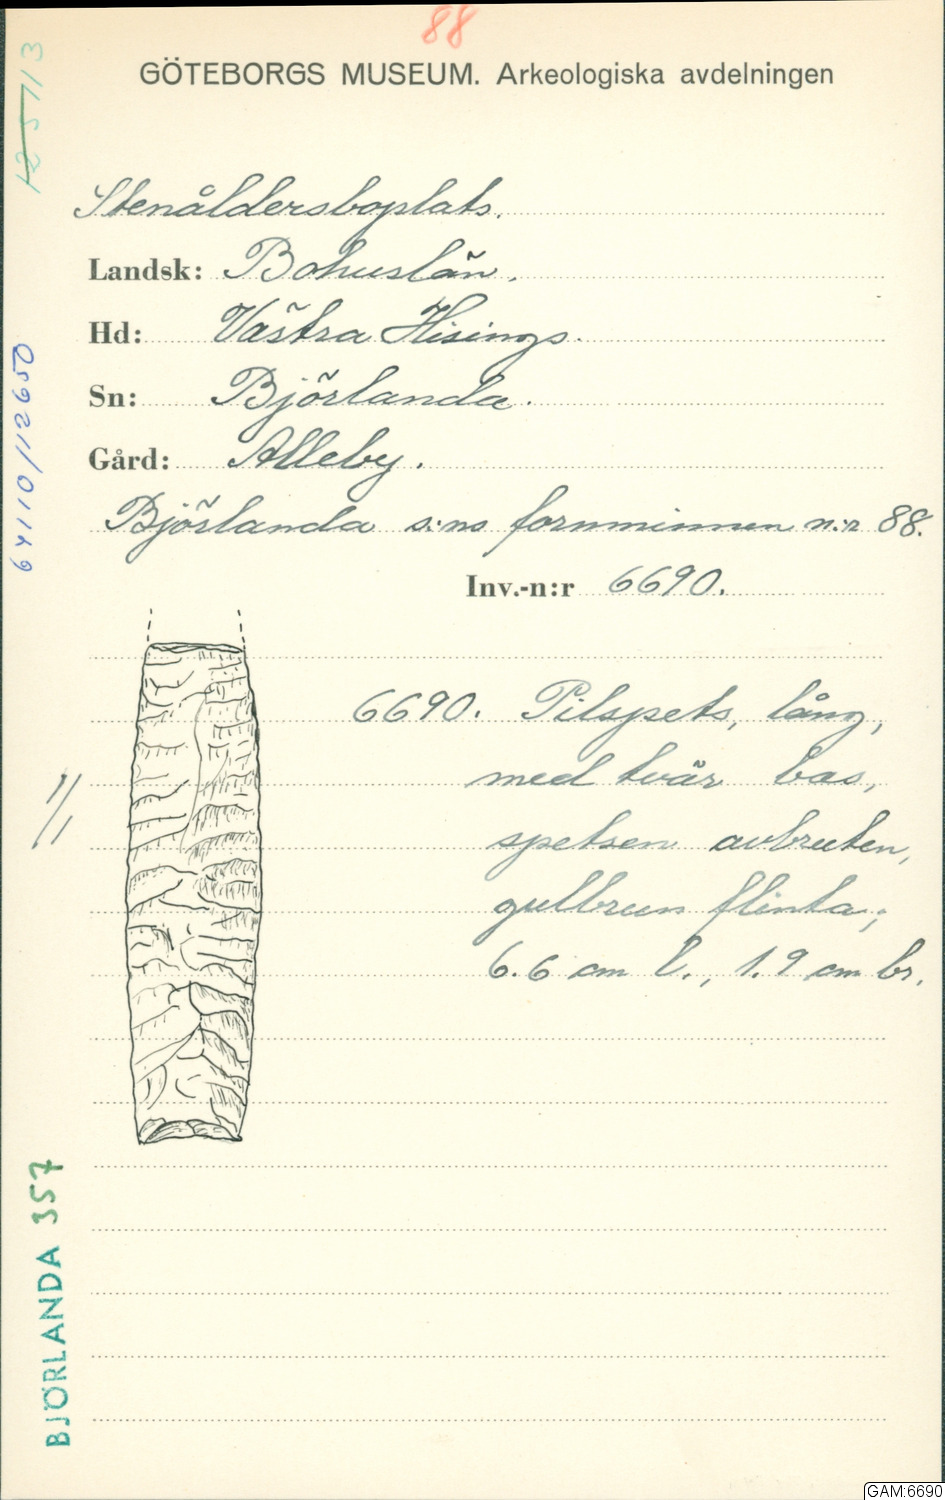 88
GÖTEBORGS MUSEUM. Arkeologiska avdelningen
Stenåldersboplats.
Landsk: Bohuslän.
Hd: Västra Hisings.
Sn: Björlanda.
Gård: Alleby.
Björlanda s:ns fornminnen n:r 88.
Inv.-n:r 6690.
6690. Pilspets, lång,
med tvär bas,
spetsen avbruten,
gulbrun flinta;
6.6 cm l., 1.9 cm br.
1/1
64110/12650
BJÖRLANDA 357
GAM:6690